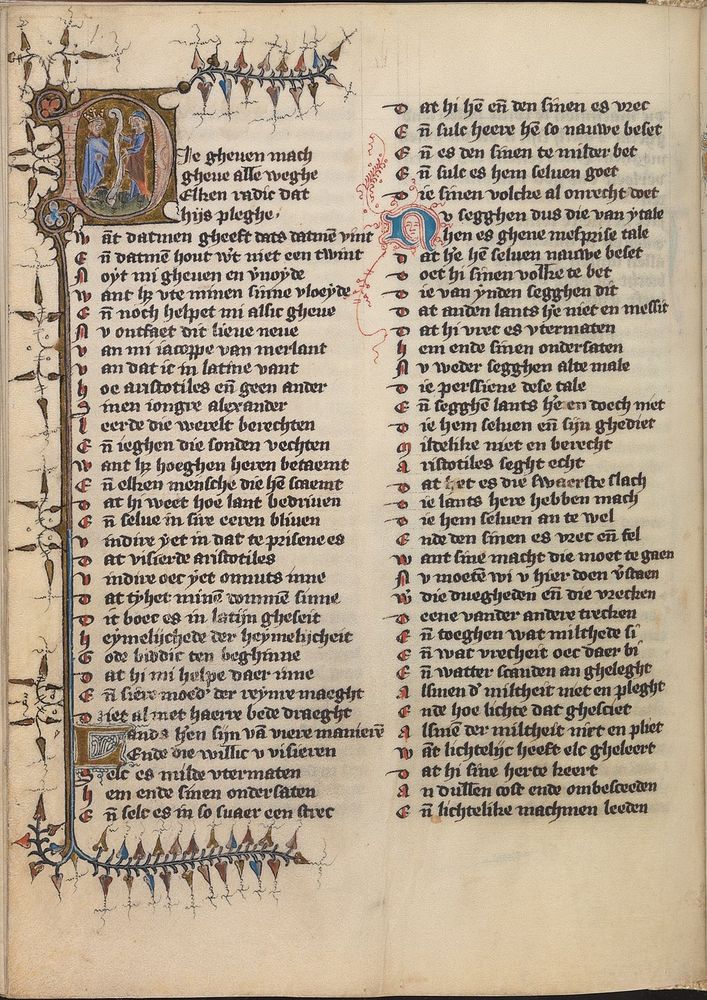 Die gheuen mach
gheue alle weghe
Elken radic dat
hijs pleghe
w ãt datmen gheeft dats datmē vint
E ñ datmen hout w't niet een twint
N oyt mi gheuen en v'noyde
w ant hẏ vte minen sinne vloeyde
E ñ noch helpet mi alsic gheue
N v ontfaet dit lieue neue
v an mi iacoppe van merlant
v an dat ic in latine vant
h oe aristotiles eñ geen ander
S inen iongre alexander
l eerde die werelt berechten
E ñ ieghen die sonden vechten
w ant hẏ hoeghen heren betaemt
E ñ elken mensche die hē scaemt
D at hi weet hoe lant bedriuen
E ñ selue in sire eeren bliuen
v indire yet in dat te prisene es
D at visierde aristotiles
v indire oec yet onnuts inne
D at tyhet minē dommen sinne
D it boec es in latijn gheseit
h eymelijchede der heymelijcheit
G ode biddic ten beghinne
D at hi mi helpe daer inne
E ñ siere moed' der reynre maeght
D iet al met haerre bede draeght
Lands h'en sijn vā viere manierē
Ende die willic v visieren
S elc es milde vtermaten
h em ende sinen ondersaten
E ñ selc es in so suaer een strec
D at hi hē eñ den sinen es vrec
E ñ sulc heere hē so nauwe beset
E ñ es den sinen te milder bet
E ñ sulc es hem seluen goet
D ie sinen volcke al onrecht doet
Nv segghen dus die van ytale
hen es ghene mesprise tale
D at h'e hē seluen nauwe beset
D oet hi sinen volke te bet
D ie van ynden segghen dit
D at anden lants h'e niet en messit
D at hi vrec es vtermaten
h em ende sinen ondersaten
N v weder segghen alte male
D ie perssiene dese tale
E ñ segghē lants h'e en doech niet
D ie hem seluen eñ sijn ghediet
M ildelike niet en berecht
A ristotiles seght echt
D at het es die swaerste slach
D ie lants here hebben mach
D ie hem seluen an te wel
E nde den sinen es vrec eñ fel
w ant sine macht die moet te gaen
N v moetē wi v hier doen v'staen
w die dueghden eñ die vrecken
D eene vander andere trecken
E ñ toeghen wat milthede si
E ñ wat vrecheit oec daer bi
E ñ watter scanden an gheleght
A lsmen d' miltheit niet en pleght
E nde hoe lichte dat ghesciet
A lsmē der miltheit niet en pliet
w ãt lichtelijc heeft elc gheleert
D at hi sine herte keert
A n dullen cost ende ombesceeden
E ñ lichtelike machmen leeden